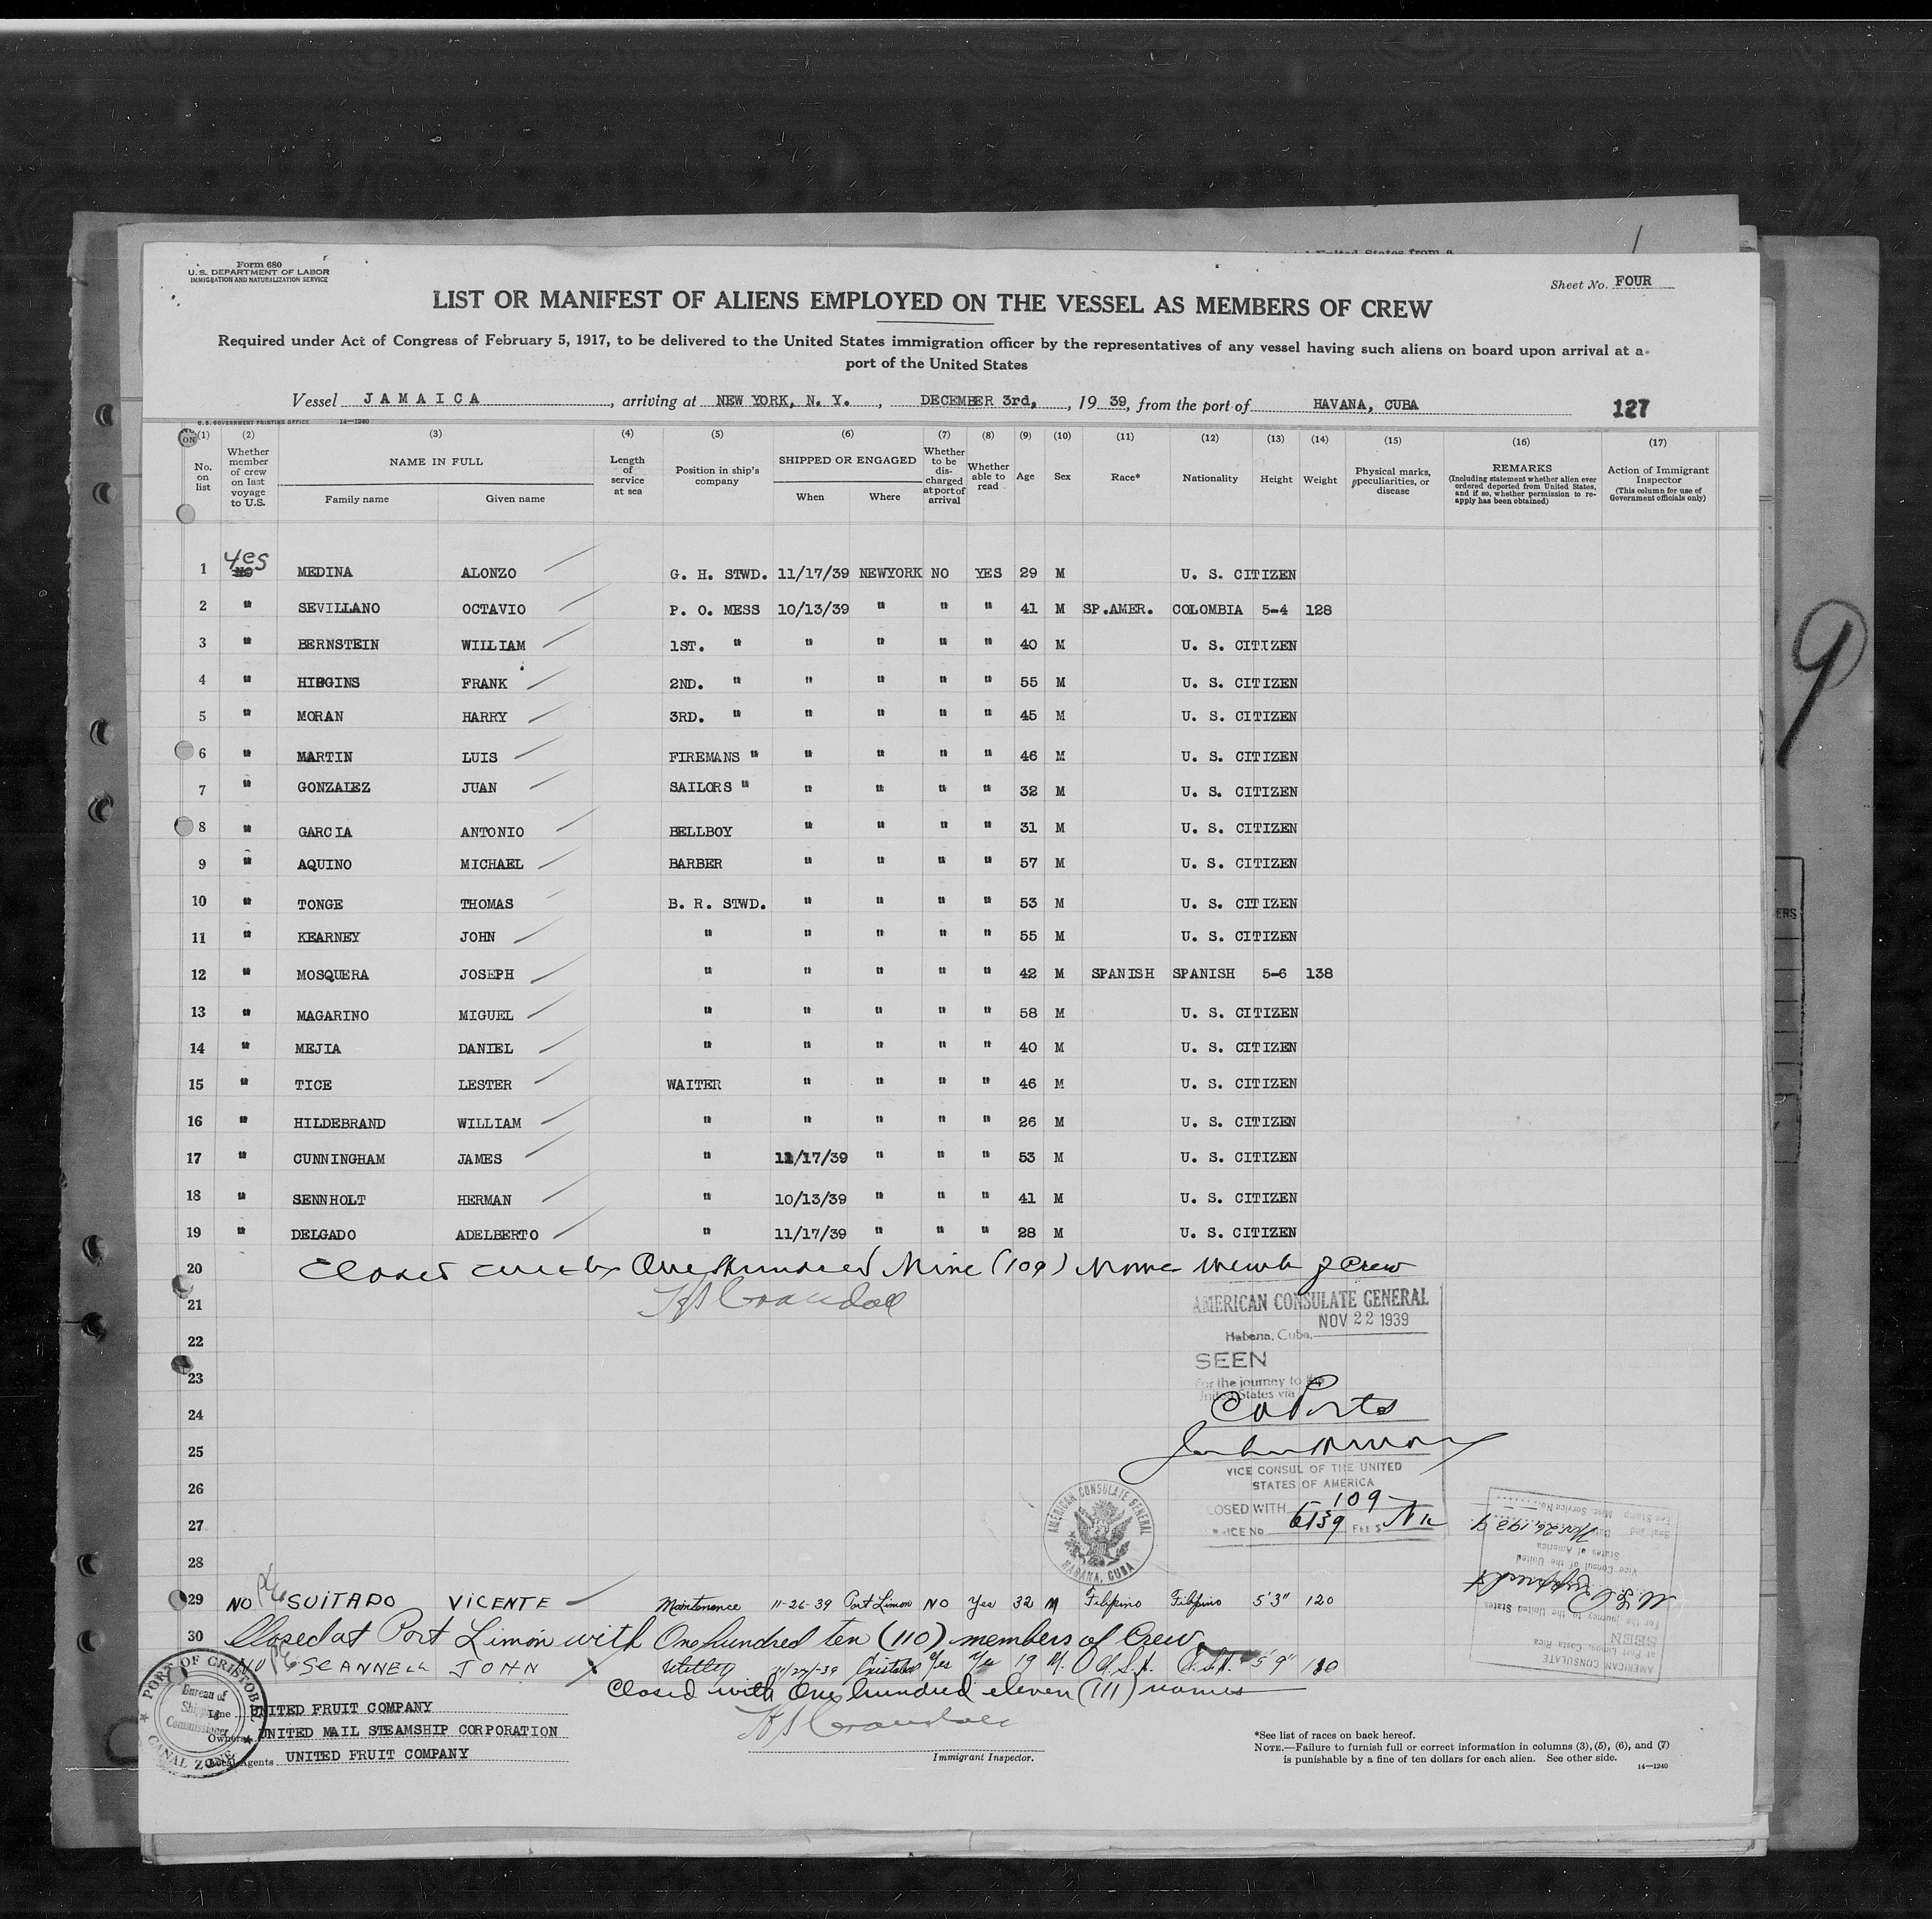 Form 680
U.S. DEPARTMENT OF LABOR
IMMIGRATION AND NATURALIZATION SERVICE
Sheet No. FOUR
LIST OR MANIFEST OF ALIENS EMPLOYED ON THE VESSEL AS MEMBERS OF CREW
Required under Act of Congress of February 5, 1917, to be delivered to the United States immigration officer by the representatives of any vessel having such aliens on board upon arrival at a
port of the United States
Vessel JAMAICA, arriving at NEW YORK, N. Y., DECEMBER 3rd, 1939, from the port of HAVANA, CUBA 127
U.S. GOVERNMENT PRINTING OFFICE 14—1240
(1) No. on list
(2) Whether member of crew on last voyage to U.S.
(3) NAME IN FULL Family name Given name
(4) Length of service at sea
(5) Position in ship's company
(6) SHIPPED OR ENGAGED When Where
(7) Whether to be discharged at port of arrival
(8) Whether able to read
(9) Age
(10) Sex
(11) Race*
(12) Nationality
(13) Height
(14) Weight
(15) Physical marks, peculiarities, or disease
(16) REMARKS (Including statement whether alien ever ordered deported from United States, and if so, whether permission to reapply has been obtained)
(17) Action of Immigrant Inspector (This column for use of Government officials only)
Yes
1 NO MEDINA ALONZO G. H. STWD. 11/17/39 NEWYORK NO YES 29 M U. S. CITIZEN
2 " SEVILLANO OCTAVIO P. O. MESS 10/13/39 " " " 41 M SP.AMER. COLOMBIA 5-4 128
3 " BERNSTEIN WILLIAM 1ST. " " " " " 40 M U. S. CITIZEN
4 " HIGGINS FRANK 2ND. " " " " " 55 M U. S. CITIZEN
5 " MORAN HARRY 3RD. " " " " " 45 M U. S. CITIZEN
6 " MARTIN LUIS FIREMANS " " " " " 46 M U. S. CITIZEN
7 " GONZALEZ JUAN SAILORS " " " " " 32 M U. S. CITIZEN
8 " GARCIA ANTONIO BELLBOY " " " " 31 M U. S. CITIZEN
9 " AQUINO MICHAEL BARBER " " " " 57 M U. S. CITIZEN
10 " TONGE THOMAS B. R. STWD. " " " " 53 M U. S. CITIZEN
11 " KEARNEY JOHN " " " " " 55 M U. S. CITIZEN
12 " MOSQUERA JOSEPH " " " " " 42 M SPANISH SPANISH 5-6 138
13 " MAGARINO MIGUEL " " " " " 58 M U. S. CITIZEN
14 " MEJIA DANIEL " " " " " 40 M U. S. CITIZEN
15 " TICE LESTER WAITER " " " " 46 M U. S. CITIZEN
16 " HILDEBRAND WILLIAM " " " " " 26 M U. S. CITIZEN
17 " CUNNINGHAM JAMES " 11/17/39 " " " 53 M U. S. CITIZEN
18 " SENNHOLT HERMAN " 10/13/39 " " " 41 M U. S. CITIZEN
19 " DELGADO ADELBERTO " 11/17/39 " " " 28 M U. S. CITIZEN
20 Closed One Hundred Nine (109) Crew
21
AMERICAN CONSULATE GENERAL
NOV 22 1939
22 Habana, Cuba,
23 SEEN
For the journey to the
United States via
24
25
VICE CONSUL OF THE UNITED
STATES OF AMERICA
26
CLOSED WITH 109
27 6139
AMERICAN CONSULATE GENERAL HABANA, CUBA
28
29 NO SUITADO VICENTE Maintenance 11-26-39 Port Limon NO Yes 32 M Filipino Filipino 5'3" 120
30 Closed at Port Limón with One hundred ten (110) members of Crew
NO SCANNELL JOHN Cristobal Yes Yes 19 M. U.S.A. 5'9"
Closed with One hundred eleven (111) names
AMERICAN CONSULATE
at Port Limon, Costa Rica
SEEN
For the journey to the United States
Vice Consul of the United
States of America
Nov. 26, 1939
PORT OF CRISTOBAL
Bureau of
Shipping
Commissioner
CANAL ZONE
Line UNITED FRUIT COMPANY
Owners UNITED MAIL STEAMSHIP CORPORATION
Local Agents UNITED FRUIT COMPANY
Immigrant Inspector.
*See list of races on back hereof.
NOTE.—Failure to furnish full or correct information in columns (3), (5), (6), and (7)
is punishable by a fine of ten dollars for each alien. See other side.
14—1240
9